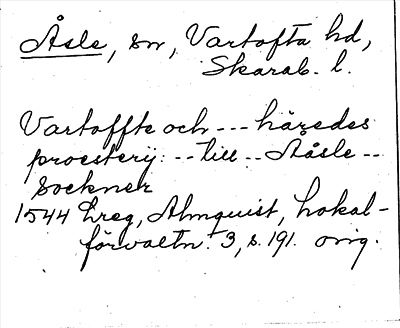 Åsle, sn, Vartofta hd,
Skarab. l.
Vartoffte och --- häredes
proesterij: -- till -- Aåsle --
Sockner
1544 Lreg, Almquist, Lokal-
förvaltn. 3, s. 191. orig.